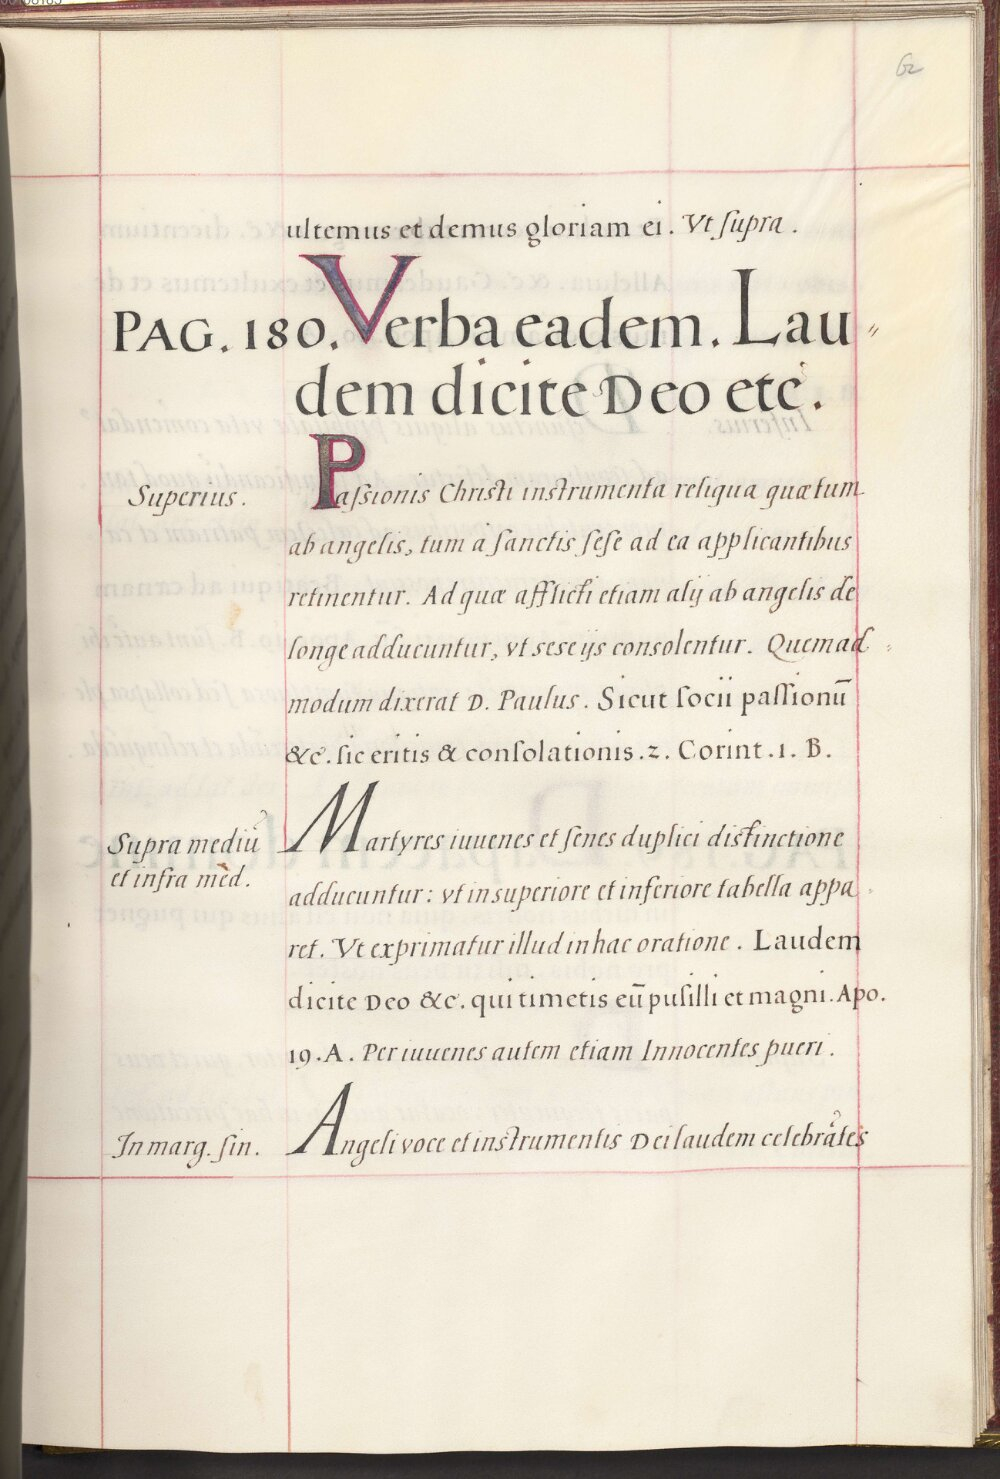 62
ultemus et demus gloriam ei. Vt ſupra.
PAG. 180. Verba eadem. Lau〃
dem dicite Deo etc.
Superius. Paſsionis Christi instrumenta reliqua quæ tum
ab angelis, tum à ſanctis ſeſe ad ea applicantibus
retinentur. Ad quæ afflicti etiam alij ab angelis de
longe adducuntur, vt sese ijs consolentur. Quemad〃
modum dixerat D. Paulus. Sicut ſocii paſſionū
&c. ſic eritis & conſolationis. 2. Corint. 1. B.
Supra mediū Martyres iuuenes et ſenes duplici distinctione
et infra med. adducuntur: vt in superiore et inferiore tabella appa〃
ret. Vt exprimatur illud in hac oratione. Laudem
dicite Deo &c. qui timetis eū puſilli et magni. Apo.
19. A. Per iuuenes autem etiam Innocentes pueri.
In marg. ſin. Angeli voce et instrumentis Dei laudem celebrātes